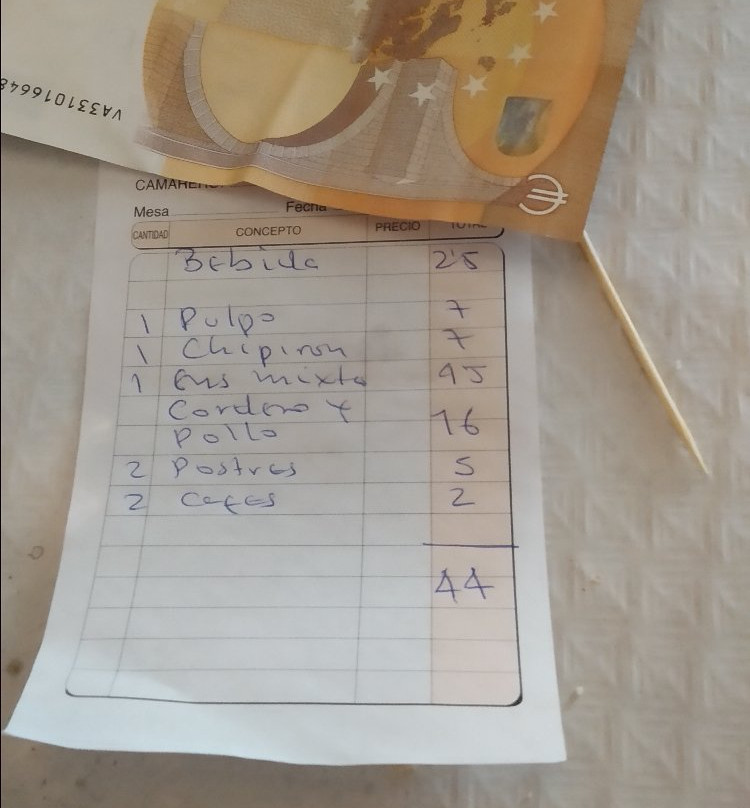 CAMARERO
Mesa Fecha
CANTIDAD CONCEPTO PRECIO TOTAL
Bebida 2'5
1 Pulpo 7
1 Chipiron 7
1 Ens mixta 45
Cordero y
Pollo 16
2 Postres 5
2 Cafes 2
44